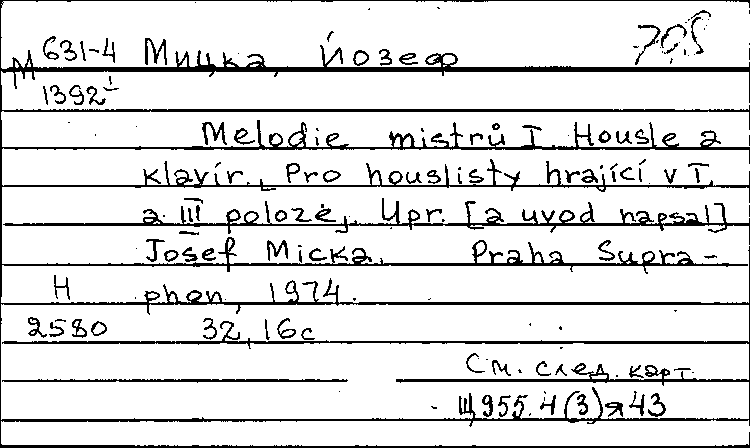 М 631-4 Мицка, Йозеф 708
1392 I
Melodie mistrů I. Housle a
klavír. [Pro houslisty hrající v I.
a III poloze]. Upr. [a uvod napsal]
Josef Micka. Praha, Supra-
H phon, 1974.
2580 32, 16 с
См. след. карт.
Щ955.4(3)я43